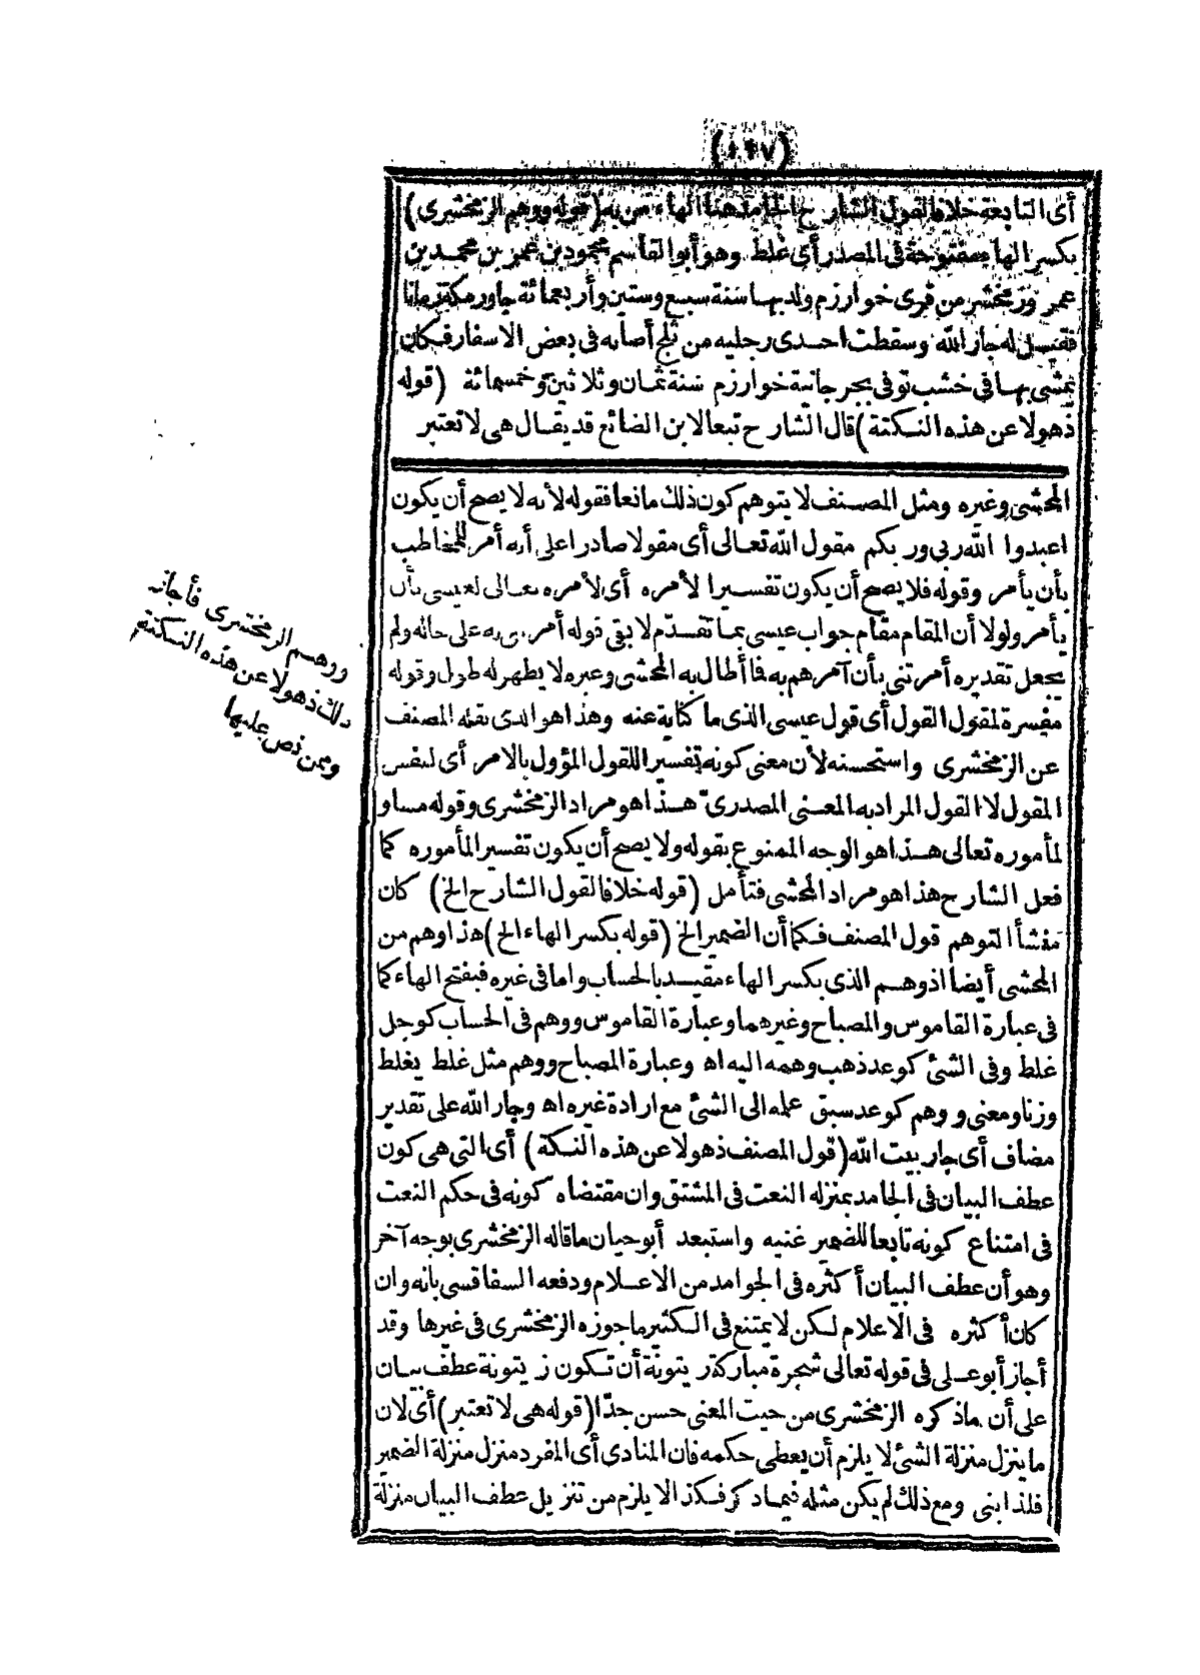 أى التابعة خلافا لقول الشارح الجامد هنا الهاء من به (قوله ووهم الزمخشرى)
بكسر الهاء مفتوحة فى المصدر أى غلط وهو أبو القاسم محمود بن عمر بن محمد بن
عمر وزمخشر من قرى خوارزم ولد بها سنة سبع وستين وأربعمائة جاور مكة زمانا
فقيل له جار الله وسقطت احدى رجليه من ثلج أصابه فى بعض الاسفار فكان
يمشى بها فى خشب توفى بجرجانية خوارزم سنة ثمان وثلاثين وخمسمائة (قوله
ذهولا عن هذه النكتة) قال الشارح تبعا لابن الضائع قد يقال هى لا تعتبر
المحشى وغيره ومثل المصنف لا يتوهم كون ذلك مانعا فقوله لأنه لا يصح أن يكون
اعبدوا الله ربى وربكم مقول الله تعالى أى مقولا صادرا على أنه أمر للمخاطب
بأن يأمر وقوله فلا يصح أن يكون تفسيرا لأمره أى لأمره تعالى لعيسى بأن
يأمر ولولا أن المقام مقام جواب عيسى بما تقدّم لا بقى قوله أمرنى به على حاله ولم
يجعل تقديره أمرتنى بأن آمرهم به فما أطال به المحشى وغيره لا يظهر له طول وقوله
مفسرة لمقول القول أى قول عيسى الذى ما كناية عنه وهذا هو الذى نقله المصنف
عن الزمخشرى واستحسنه لأن معنى كونه تفسيرا للقول المؤول بالامر أى لنفس
المقول لا القول المراد به المعنى المصدرىّ هذا هو مراد الزمخشرى وقوله مساو
لمأموره تعالى هذا هو الوجه الممنوع بقوله ولا يصح أن يكون تفسير المأموره كما
فعل الشارح هذا هو مراد المحشى فتأمل (قوله خلافا لقول الشارح الخ) كان
منشأ التوهم قول المصنف فكما أن الضمير الخ (قوله بكسر الهاء الخ) هذا وهم من
المحشى أيضا اذ وهم الذى بكسر الهاء مقيد بالحساب واما فى غيره فبفتح الهاء كما
فى عبارة القاموس والمصباح وغيرهما وعبارة القاموس ووهم فى الحساب كوجل
غلط وفى الشئ كوعد ذهب وهمه اليه اه وعبارة المصباح ووهم مثل غلط يغلط
وزنا ومعنى ووهم كوعد سبق عمله الى الشئ مع ارادة غيره اه وجار الله على تقدير
مضاف أى جار بيت الله (قول المصنف ذهولا عن هذه النكتة) أى التى هى كون
عطف البيان فى الجامد بمنزله النعت فى المشتق وان مقتضاه كونه فى حكم النعت
فى امتناع كونه تابعا للضمير غنيه واستبعد أبو حيان ما قاله الزمخشرى بوجه آخر
وهو أن عطف البيان أكثره فى الجوامد من الاعلام ودفعه السفاقسى بانه وان
كان أكثره فى الاعلام لكن لا يمتنع فى الكثير ما جوزه الزمخشرى فى غيرها وقد
أجاز أبو على فى قوله تعالى شجرة مباركة زيتونة أن تكون زيتونة عطف بيان
على أن ما ذكره الزمخشرى من حيث المعنى حسن جدّا (قوله هى لا تعتبر) أى لان
ما ينزل منزلة الشئ لا يلزم أن يعطى حكمه فان المنادى أى المفرد منزل منزلة الضمير
فلذا بنى ومع ذلك لم يكن مثله فيما ذكر فكذا لا يلزم من تنزيل عطف البيان منزلة
ووهم الزمخشرى فأجاز
ذلك ذهولا عن هذه النكتة
وممن نص عليها